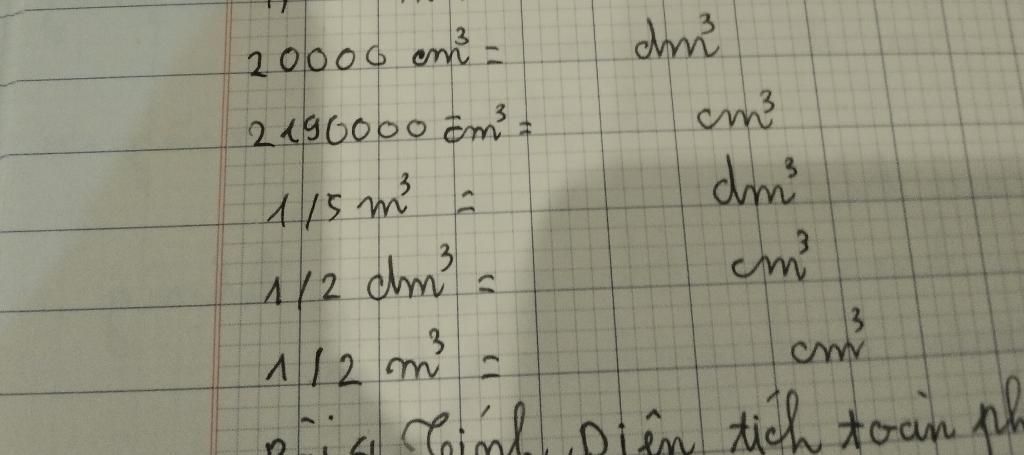 20000 cm³ = dm³
2190000 cm³ = cm³
1/5 m³ = dm³
1/2 dm³ = cm³
1/2 m³ = cm³
Tính Diện tích toàn ph